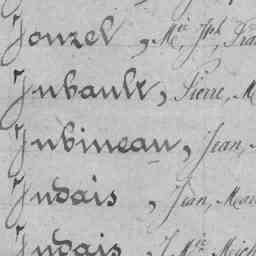 Jouzel, Mie, Jph, Fra
Jubault, Pierre, M
Jubineau, Jean,
Judais, Jean, Mar
Judais, J Mie Mich